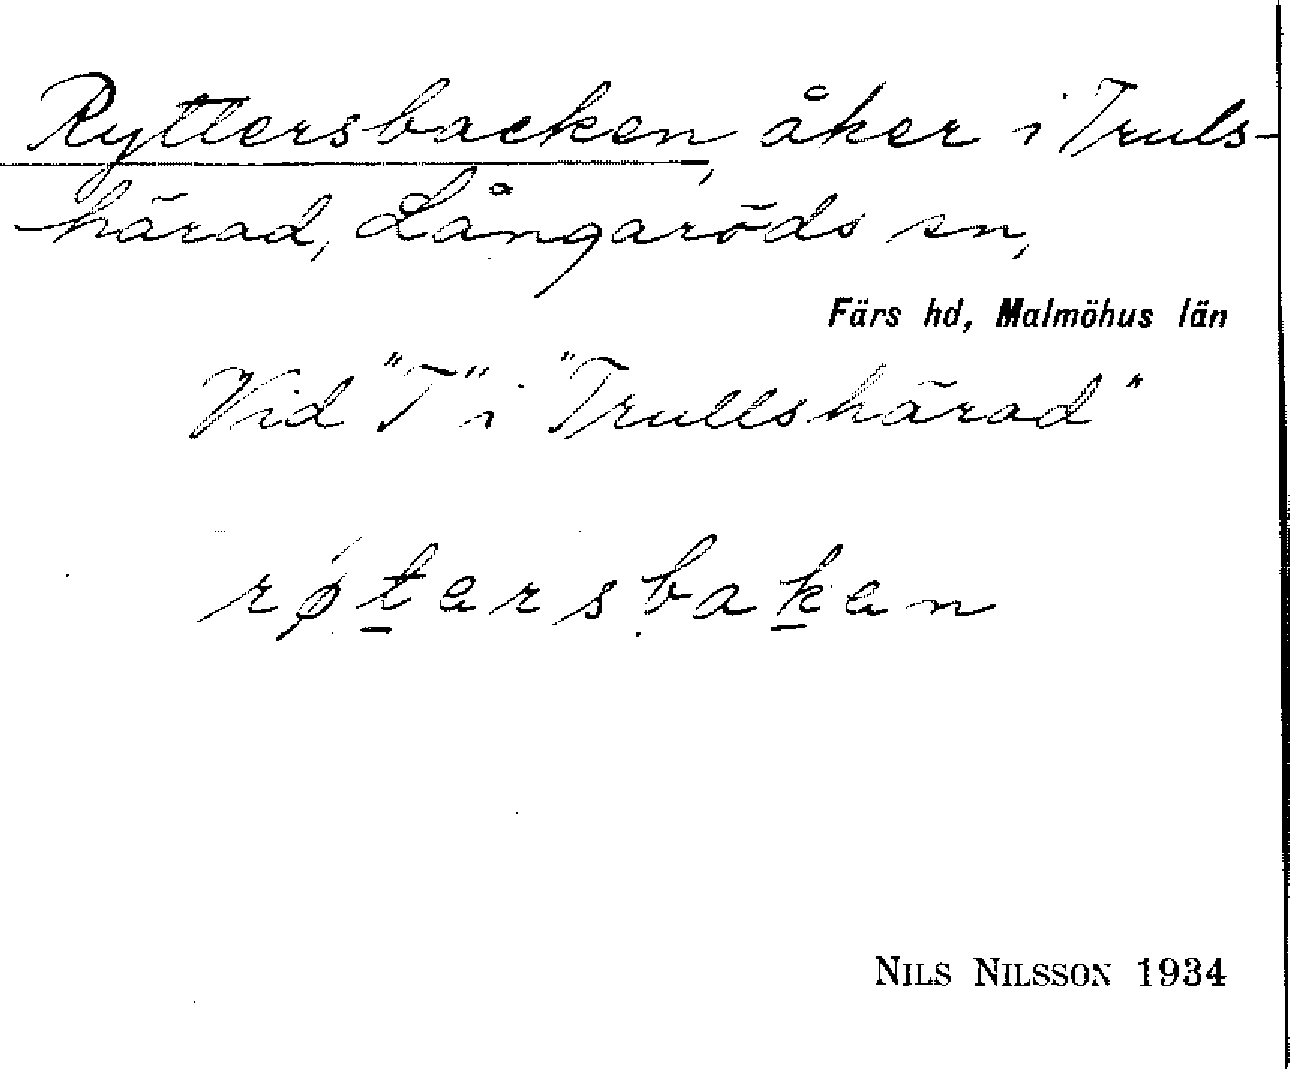 Ryttersbacken, åker i Truls-
härad, Långaröds sn,
Färs hd, Malmöhus län
Vid "T" i "Trullshärad"
røtersbaken
NILS NILSSON 1934